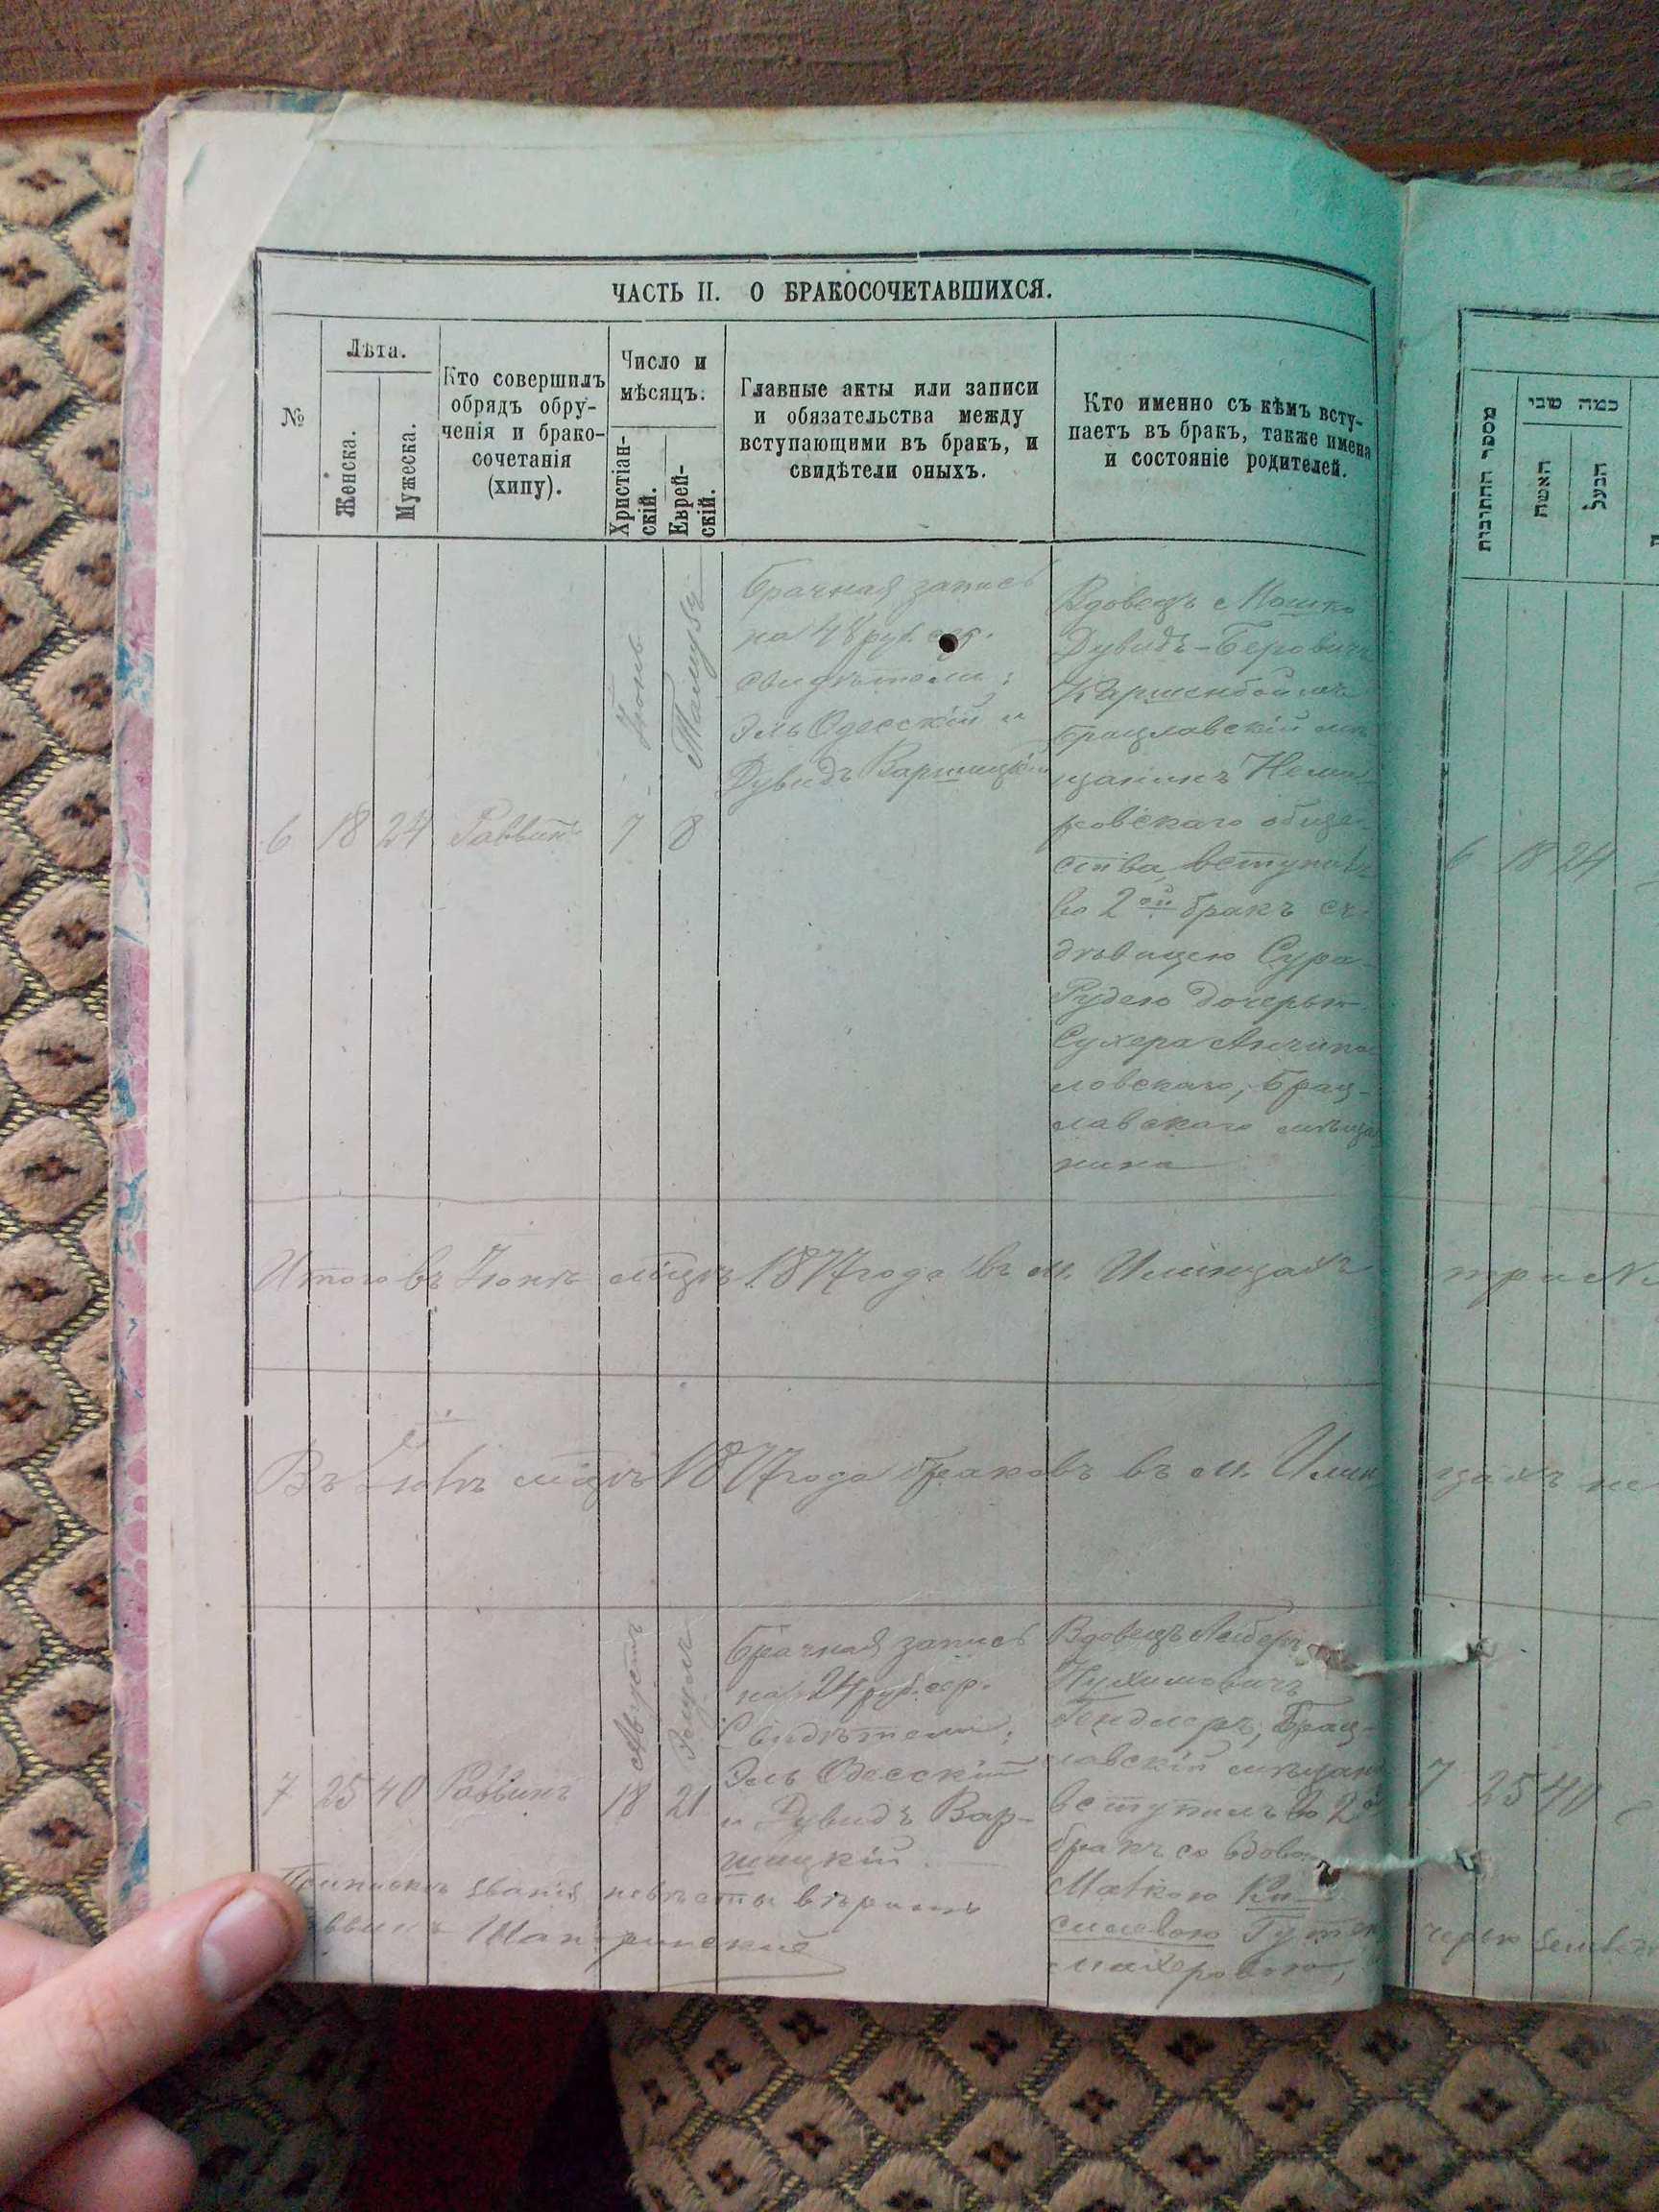 ЧАСТЬ II. О БРАКОСОЧЕТАВШИХСЯ.
№
Лѣта.
Женска.
Мужеска.
Кто совершилъ
обрядъ обру-
ченія и брако-
сочетанія
(хипу).
Число и
мѣсяцъ.
Христіан-
скій.
Еврей-
скій.
Главные акты или записи
и обязательства между
вступающими въ бракъ, и
свидѣтели оныхъ.
Кто именно съ кѣмъ всту-
паетъ въ бракъ, также имена
и состояніе родителей.
6
18
24
Раввинъ
Іюнь
7
Тамузъ
8
Брачная запись
на 48 руб. сер.
свидѣтели:
Эль Одесскій и
Дувидъ Варшицкій
Вдовецъ Мошко
Дувидъ-Беровичъ
Каршенбоймъ
Брацлавскій мѣ-
щанинъ Неми-
ровскаго обще-
ства, вступилъ
во 2ой бракъ съ
дѣвицею Сура-
Рудею дочерью
Сухера
ловскаго, Брац-
лавскаго мѣща
нина
Итого въ Іюнѣ мѣцѣ 1877 года въ м. Илинцахъ
Въ Іюлѣ мѣцѣ 1877 года браковъ въ м. Илин
7
25
40
Раввинъ
Августъ
18
Элулъ
21
Брачная запись
на 24 руб. сер.
Свидѣтели:
Эль Одесскій
и Дувидъ Вар-
шицкій.
Вдовецъ Лейберъ
Нухимовичъ
Гендлеръ, Брац-
лавскій мѣщан
вступилъ во 2ой
бракъ со вдово
Маткою Ки-
силевою Гутен
махеровою,
званія невѣсты вѣрить
מספר החתונות
כמה שני
האשה
הבעל
6
18
24
три
цахъ не
7
25
40